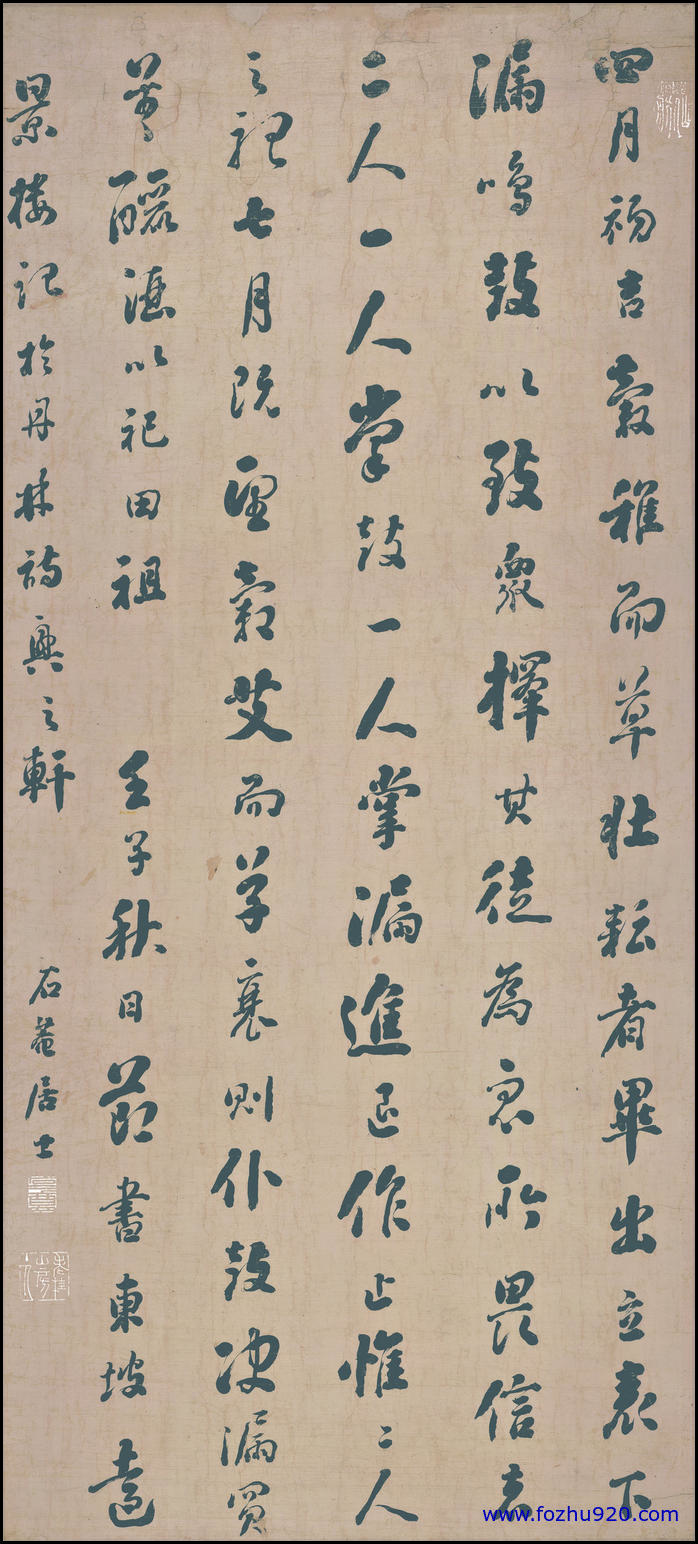 四月初吉穀稚而草壯耘者畢出立表下
漏鳴鼓以致眾擇其徒為眾所畏信者
二人一人掌鼓一人掌漏進退作止惟二人
之視七月既望穀艾而草衰則仆鼓决漏買
羊釃酒以祀田祖 壬子秋日節書東坡遠
景楼記於丹林詩興之軒
石菴居士
www.fozhu920.com